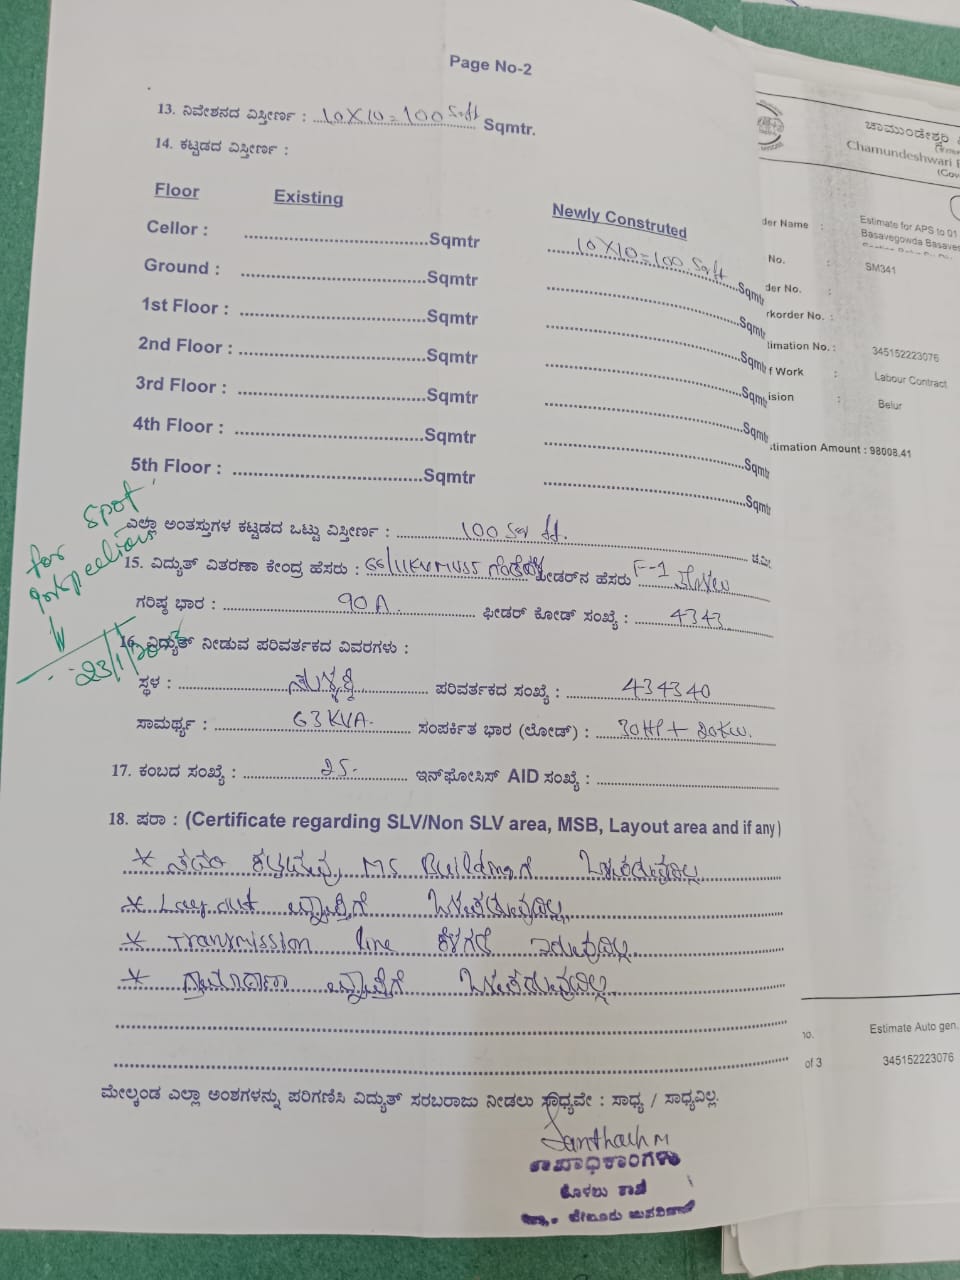 Page No-2
13. ನಿವೇಶನದ ವಿಸ್ತೀರ್ಣ : 10X10=100 Sqft Sqmtr.
14. ಕಟ್ಟಡದ ವಿಸ್ತೀರ್ಣ :
Floor Existing Newly Construted
Cellor : Sqmtr 10X10=100 Sqft Sqmtr
Ground : Sqmtr Sqmtr
1st Floor : Sqmtr Sqmtr
2nd Floor : Sqmtr Sqmtr
3rd Floor : Sqmtr Sqmtr
4th Floor : Sqmtr Sqmtr
5th Floor : Sqmtr Sqmtr
ಎಲ್ಲಾ ಅಂತಸ್ತುಗಳ ಕಟ್ಟಡದ ಒಟ್ಟು ವಿಸ್ತೀರ್ಣ : 100 Sq ft. ಚ.ಮೀ.
15. ವಿದ್ಯುತ್ ವಿತರಣಾ ಕೇಂದ್ರ ಹೆಸರು : 66/11KV MUSS ಫೀಡರ್‌ನ ಹೆಸರು F-1
ಗರಿಷ್ಠ ಭಾರ : 90A. ಫೀಡರ್ ಕೋಡ್ ಸಂಖ್ಯೆ : 4343
16. ವಿದ್ಯುತ್ ನೀಡುವ ಪರಿವರ್ತಕದ ವಿವರಗಳು :
ಸ್ಥಳ : ಪರಿವರ್ತಕದ ಸಂಖ್ಯೆ : 434340
ಸಾಮರ್ಥ್ಯ : 63KVA. ಸಂಪರ್ಕಿತ ಭಾರ (ಲೋಡ್) : 30HP + 20KW.
17. ಕಂಬದ ಸಂಖ್ಯೆ : 25- ಇನ್‌ಫೋಸಿಸ್ AID ಸಂಖ್ಯೆ :
18. ಷರಾ : (Certificate regarding SLV/Non SLV area, MSB, Layout area and if any)
* ಸದರಿ ಕಟ್ಟಡವು MS Buildingಗೆ ಒಳಪಡುವುದಿಲ್ಲ
* Layout ವ್ಯಾಪ್ತಿಗೆ ಒಳಪಡುವುದಿಲ್ಲ
* Transmission line ಕೆಳಗಡೆ ಇರುವುದಿಲ್ಲ
* ಗ್ರಾಮಠಾಣಾ ವ್ಯಾಪ್ತಿಗೆ ಒಳಪಡುವುದಿಲ್ಲ
ಮೇಲ್ಕಂಡ ಎಲ್ಲಾ ಅಂಶಗಳನ್ನು ಪರಿಗಣಿಸಿ ವಿದ್ಯುತ್ ಸರಬರಾಜು ನೀಡಲು ಸಾಧ್ಯವೇ : ಸಾಧ್ಯ / ಸಾಧ್ಯವಿಲ್ಲ.
ಶಾಖಾಧಿಕಾರಿಗಳು
for spot
inspection
23/1/2023
ಚಾಮುಂಡೇಶ್ವರಿ
Chamundeshwari
(Gov
der Name : Estimate for APS to 01
Basavegowda Basave
No. : SM341
der No. :
rkorder No. :
timation No. : 345152223076
f Work : Labour Contract
ision : Belur
timation Amount : 98008.41
Estimate Auto gen.
of 3 345152223076